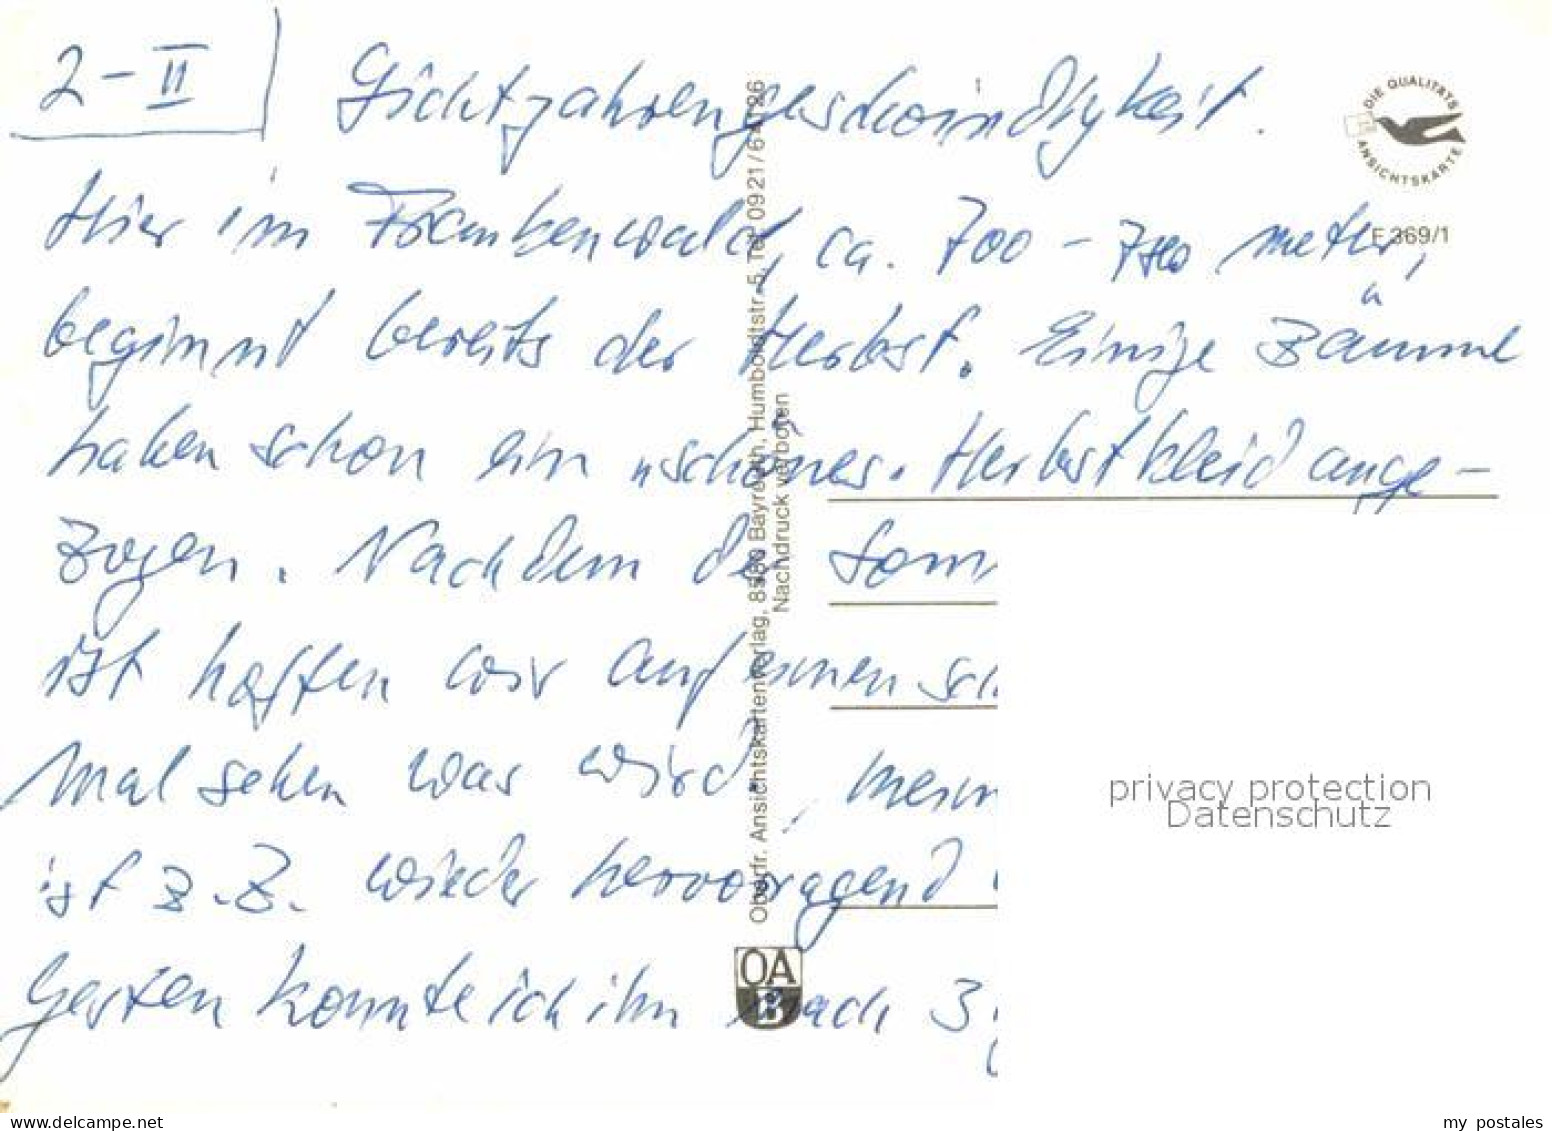 2-II
Lichtjahrengeschwindigkeit.
Hier im Frankenwald, ca. 700 - meter,
beginnt bereits der Herbst. Einige Bäume
haben schon ein "schönes" Herbstkleid ange-
zogen. Nachdem de Som
ist hoffen wir auf einen sch
Mal sehen was wird,
ist z.Z. wieder hervorragend
Gestern konnte ich ihn nach 3
DIE QUALITÄTS
ANSICHTSKARTE
F 369/1
Oberfr. Ansichtskartenverlag, 8580 Bayreuth, Humboldtstr. 5, Tel. 0921/64126
Nachdruck verboten
OA
B
privacy protection
Datenschutz
www.delcampe.net
my postales